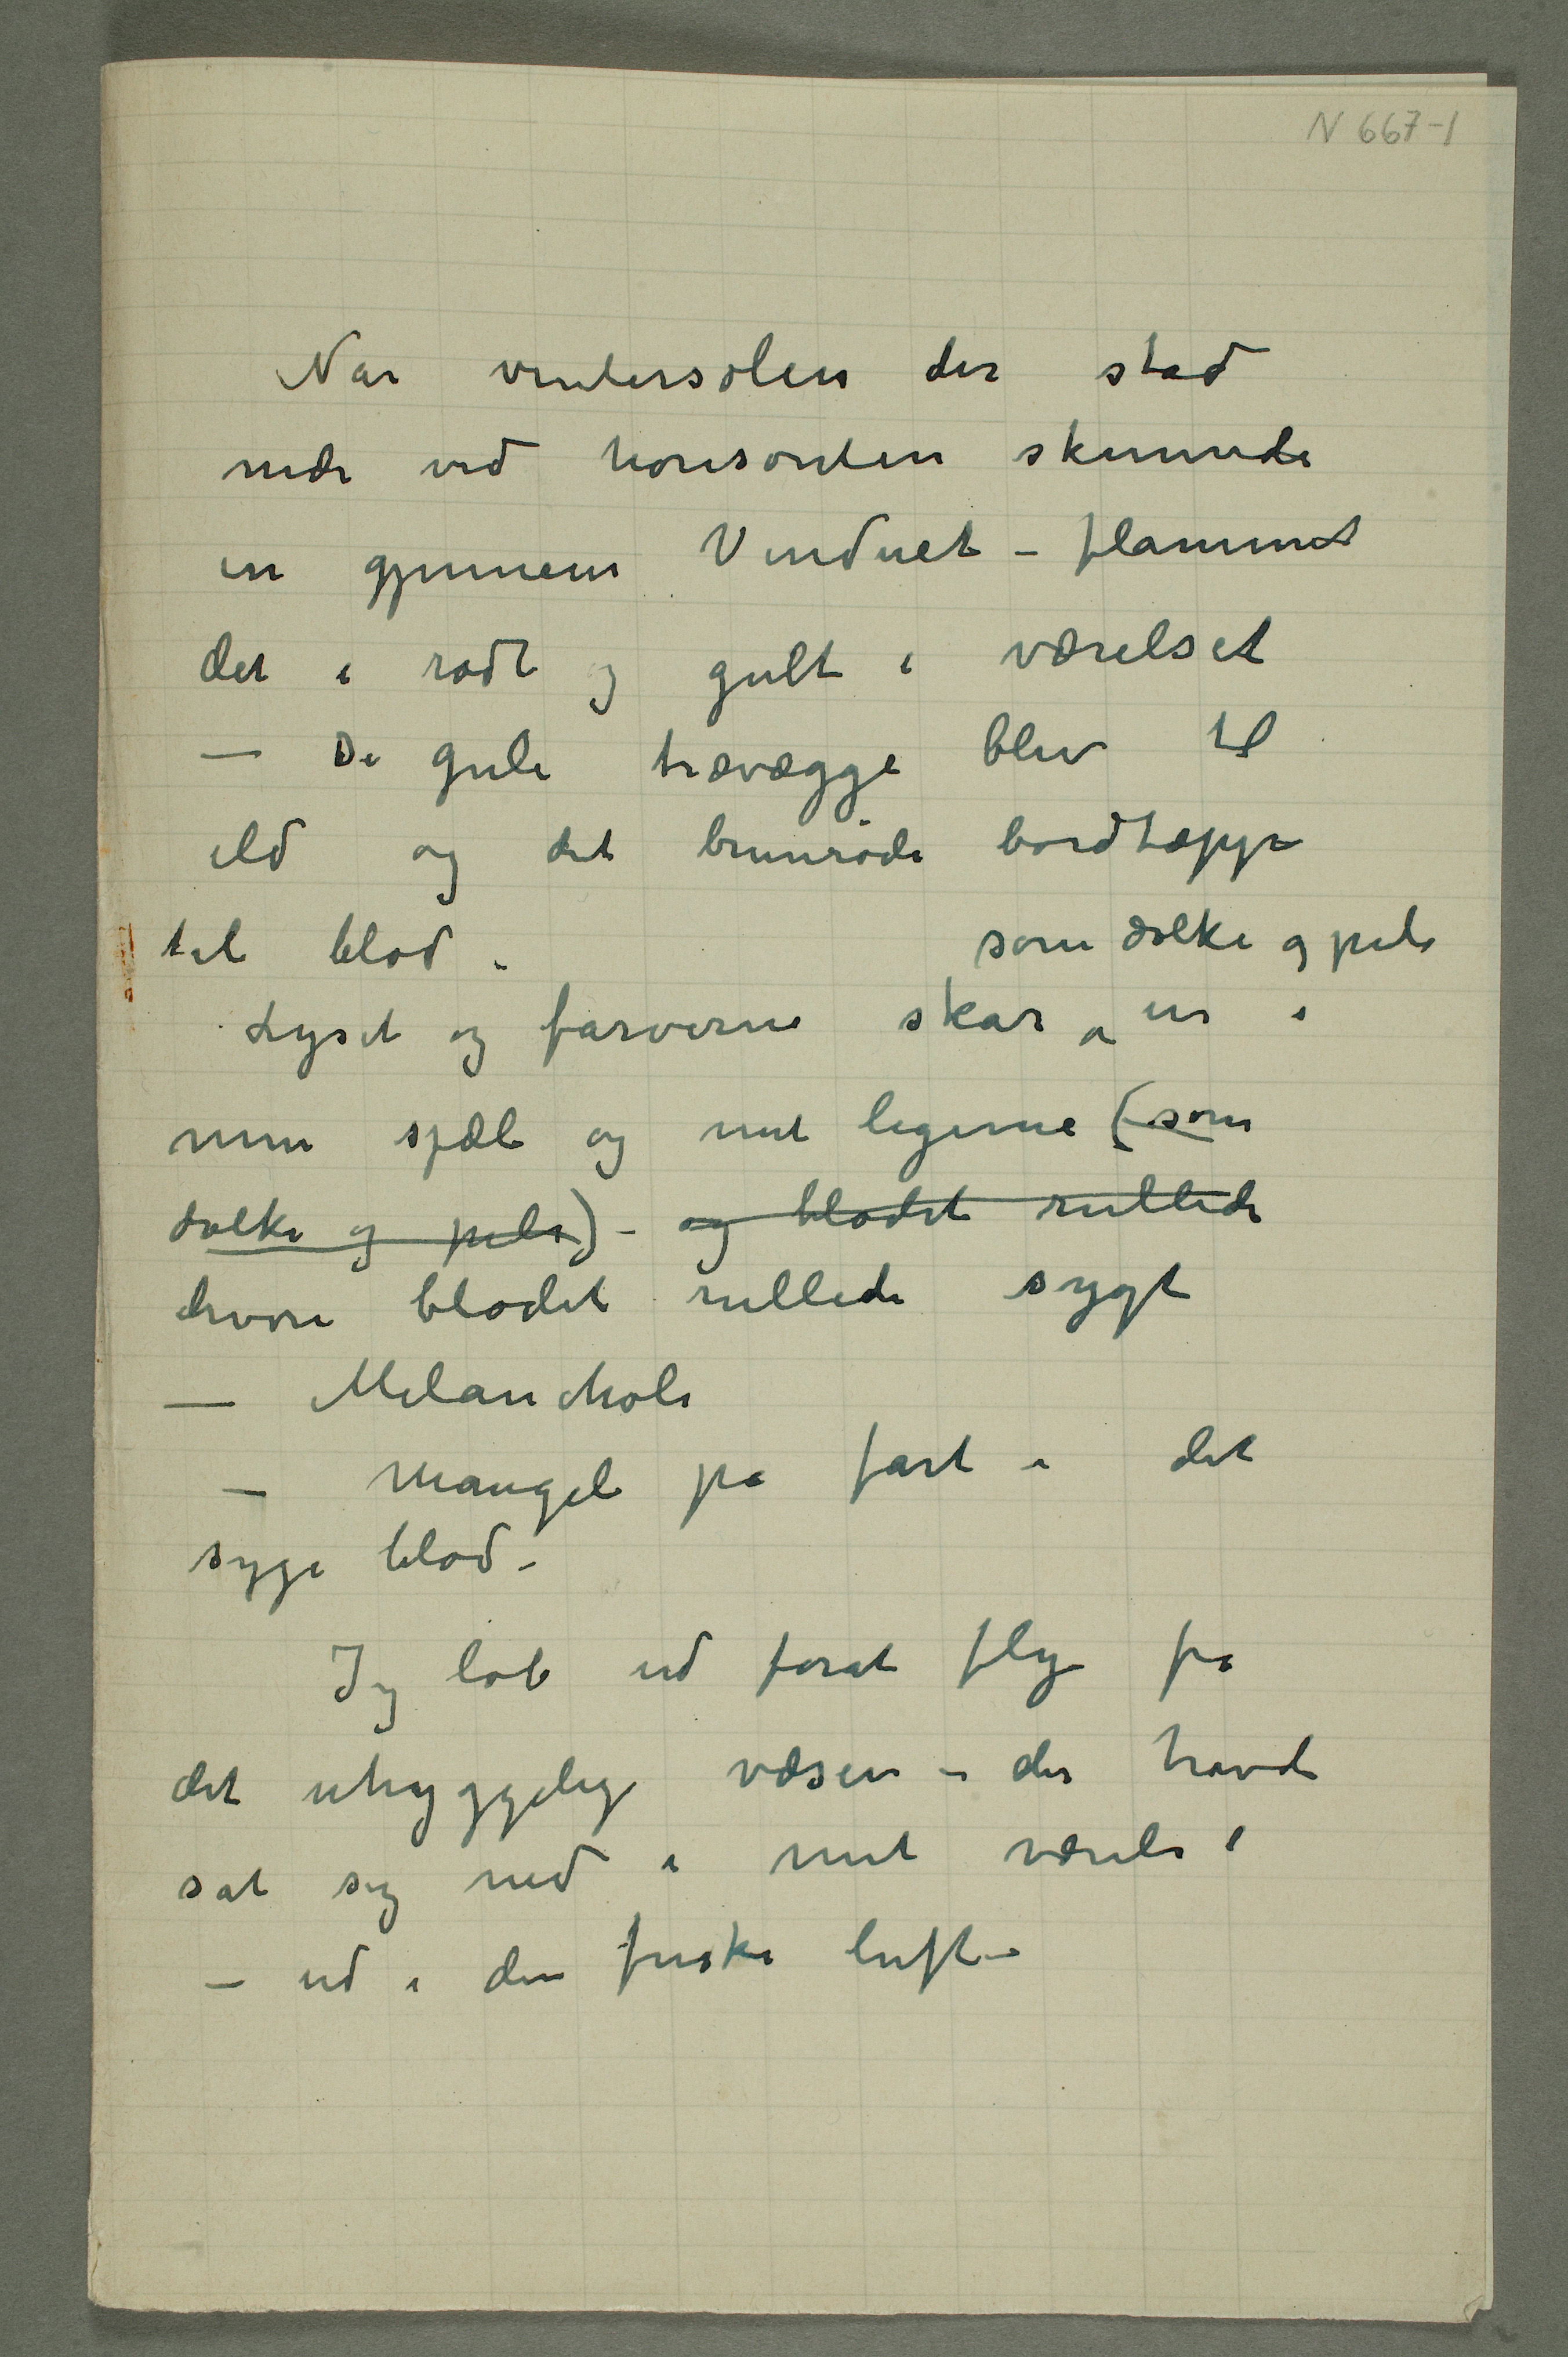 N 667-1
Når vintersolen der stod
nede ved horisonten skinnede
in gjennem Vinduet – flammet
det i rødt og gult i værelset
— De gule trævægge blev til
ild og det brunrøde bordtæppe
til blod.
som dolke og pile
Lyset og farverne skar in i
min sjæl og mit legeme (som
dolke og pile) – og blodet rullede
hvori blodet rullede sygt
— Melancholi
— Mangel på fart i det
syge blod –
Jeg løb ud forat fly fra
det uhyggelige væsen – der havde
sat sig ned i mit værelse
— ud i den friske luft –